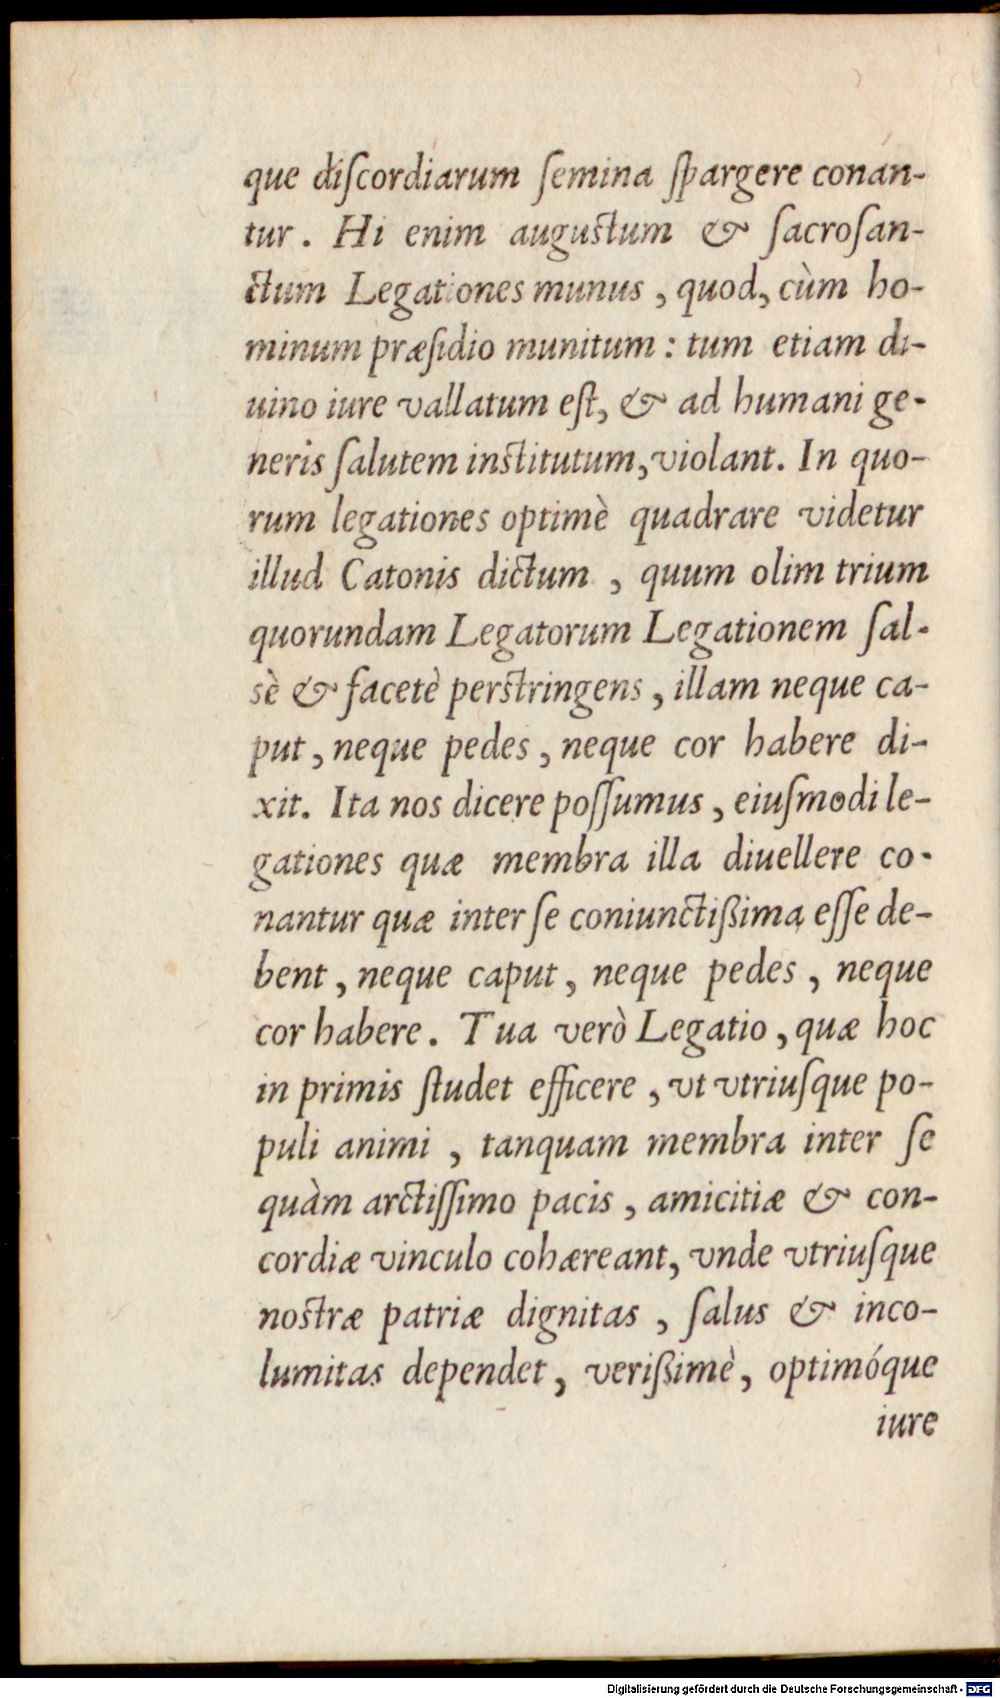 que diſcordiarum ſemina ſpargere conan-
tur. Hi enim auguſtum & ſacroſan-
ctum Legationes munus, quod, cùm ho-
minum præſidio munitum: tum etiam di-
uino iure vallatum eſt, & ad humani ge-
neris ſalutem inſtitutum, violant. In quo-
rum legationes optimè quadrare videtur
illud Catonis dictum, quum olim trium
quorundam Legatorum Legationem ſal-
sè & facetè perſtringens, illam neque ca-
put, neque pedes, neque cor habere di-
xit. Ita nos dicere poſſumus, eiuſmodi le-
gationes quæ membra illa diuellere co-
nantur quæ inter ſe coniunctißima eſſe de-
bent, neque caput, neque pedes, neque
cor habere. Tua verò Legatio, quæ hoc
in primis ſtudet efficere, vt vtriuſque po-
puli animi, tanquam membra inter ſe
quàm arctiſſimo pacis, amicitiæ & con-
cordiæ vinculo cohæreant, vnde vtriuſque
noſtræ patriæ dignitas, ſalus & inco-
lumitas dependet, verißimè, optimóque
iure
Digitalisierung gefördert durch die Deutsche Forschungsgemeinschaft - DFG